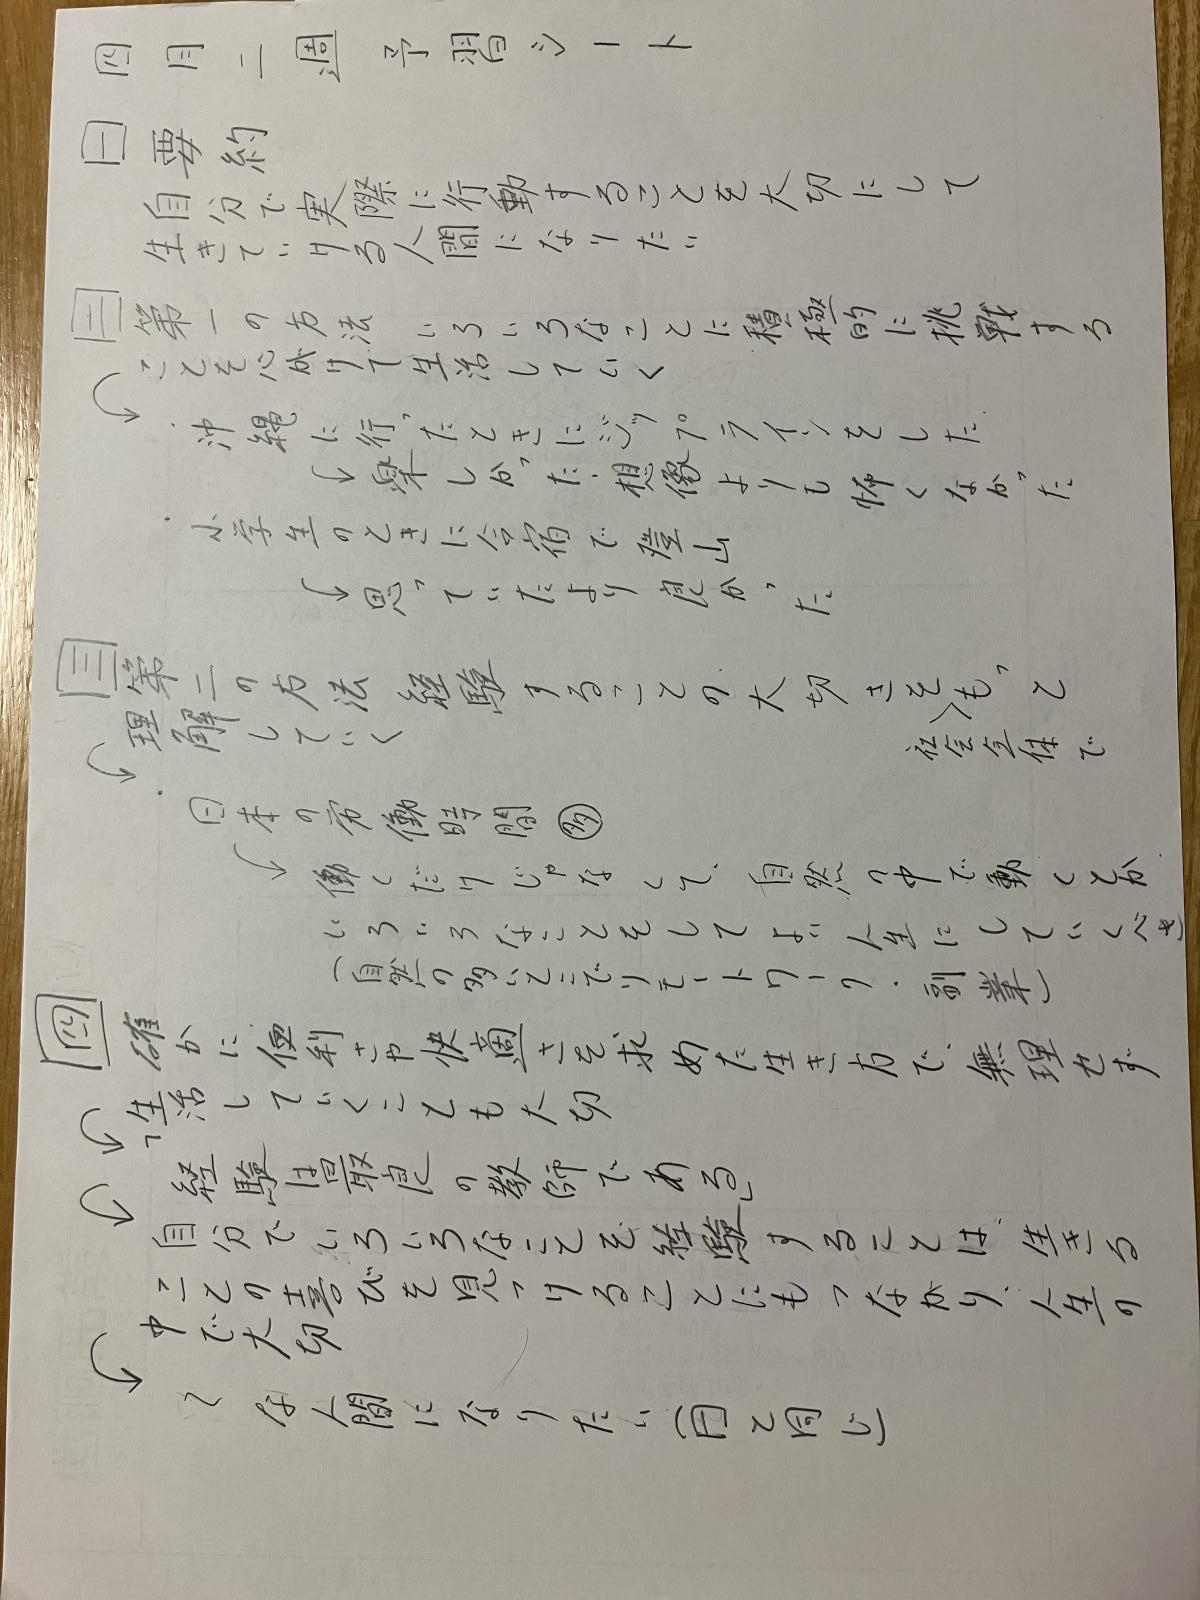 四月二週 予習シート
一 要約
自分で実際に行動することを大切にして
生きていける人間になりたい
二 第一の方法 いろいろなことに積極的に挑戦する
ことを心がけて生活していく
・沖縄に行ったときにジップラインをした
楽しかった・想像よりも怖くなかった
・小学生のときに合宿で登山
思っていたより良かった
三 第二の方法 経験することの大切さをもっと
社会全体で
理解していく
・日本の労働時間 多
働くだけじゃなくて、自然の中で動くとか
いろいろなことをしてよい人生にしていくべき
(自然の多いとこでリモートワーク・副業)
四 確かに便利さや快適さを求めた生き方で、無理せず
生活していくことも大切
「経験は最良の教師である」
自分でいろいろなことを経験することは、生きる
ことの喜びを見つけることにもつながり、人生の
中で大切
〜な人間になりたい (一と同じ)